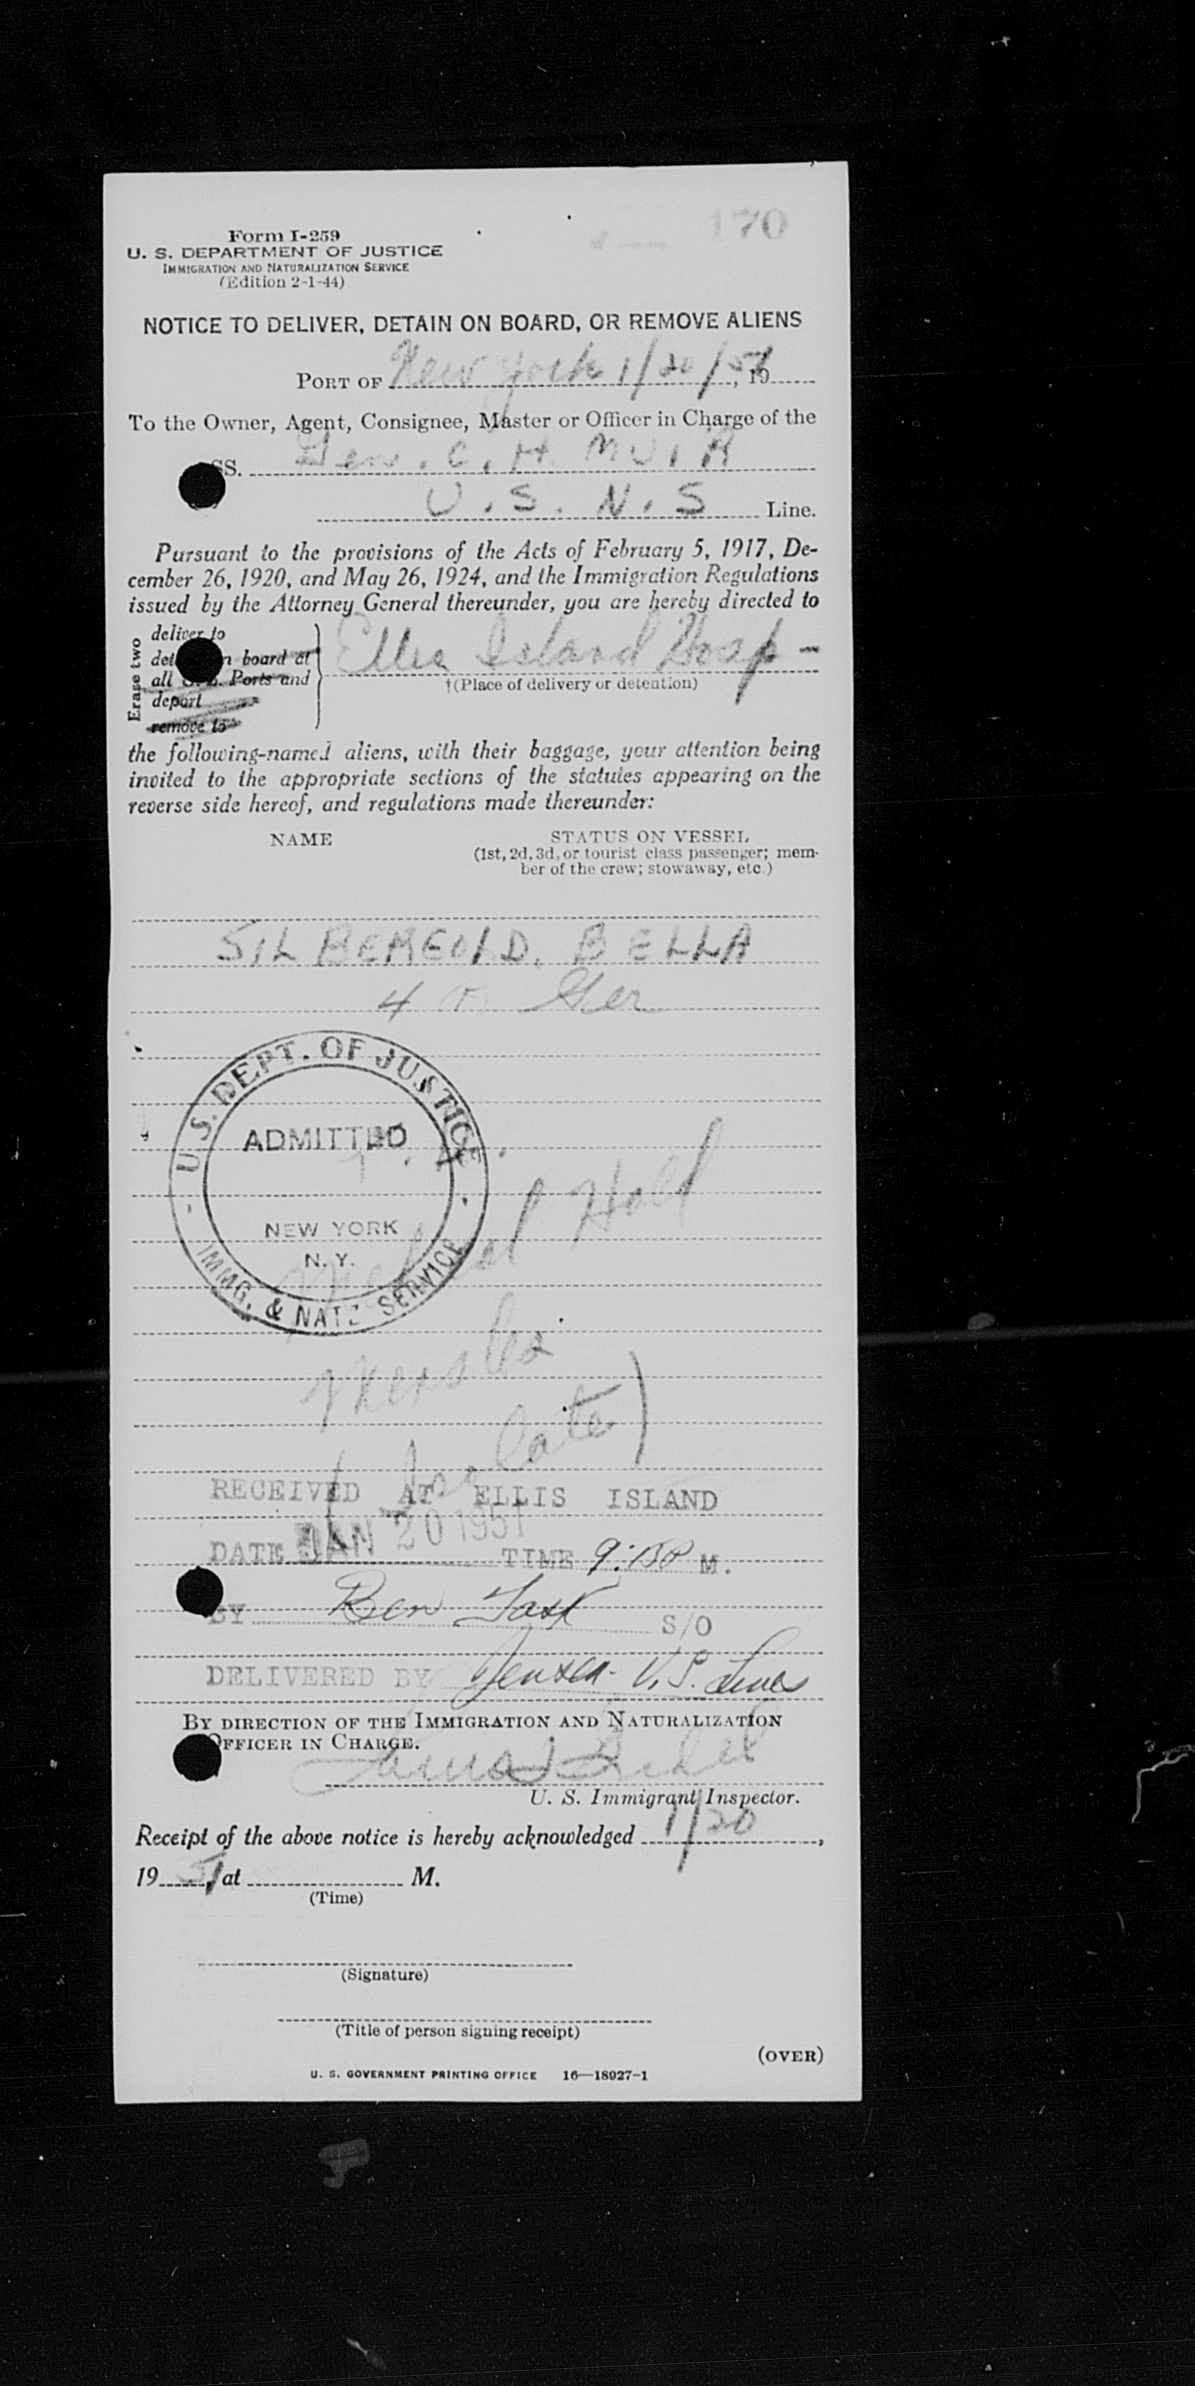 170
Form I-259
U. S. DEPARTMENT OF JUSTICE
IMMIGRATION AND NATURALIZATION SERVICE
(Edition 2-1-44)
NOTICE TO DELIVER, DETAIN ON BOARD, OR REMOVE ALIENS
PORT OF New York 1/20/51, 19
To the Owner, Agent, Consignee, Master or Officer in Charge of the
SS. Gen. C. H. MUIR
U. S. N. S Line.
Pursuant to the provisions of the Acts of February 5, 1917, De-
cember 26, 1920, and May 26, 1924, and the Immigration Regulations
issued by the Attorney General thereunder, you are hereby directed to
Erase two
deliver to
board at
all Ports and
deport
remove to
Ellis Island Hosp-
†(Place of delivery or detention)
the following-named aliens, with their baggage, your attention being
invited to the appropriate sections of the statutes appearing on the
reverse side hereof, and regulations made thereunder:
NAME
STATUS ON VESSEL
(1st, 2d, 3d, or tourist class passenger; mem-
ber of the crew; stowaway, etc.)
BELLA
4 Ger
U. S. DEPT. OF JUSTICE
ADMITTED
NEW YORK
N. Y.
IMMG. & NATZ SERVICE
Medical Hold
Measles
(Isolate)
RECEIVED AT ELLIS ISLAND
DATE JAN 20 1951 TIME 9: P M.
BY Ben S/O
DELIVERED BY Jensen U.S. Lines
BY DIRECTION OF THE IMMIGRATION AND NATURALIZATION
OFFICER IN CHARGE.
U. S. Immigrant Inspector.
Receipt of the above notice is hereby acknowledged 1/20,
19 51, at M.
(Time)
(Signature)
(Title of person signing receipt)
(OVER)
U. S. GOVERNMENT PRINTING OFFICE 16—18927-1